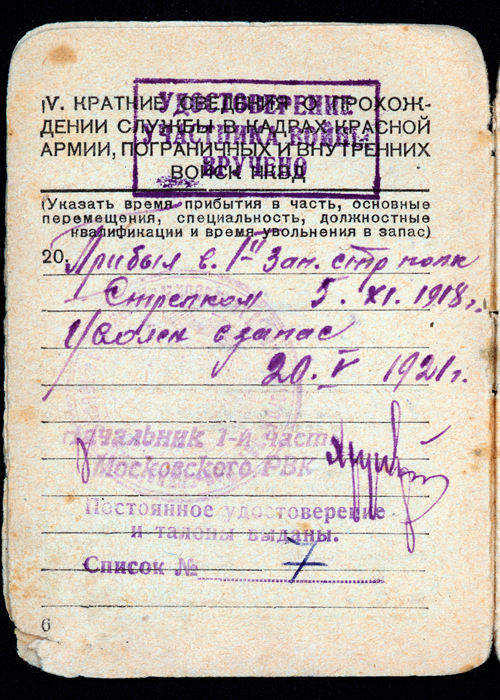 УДОСТОВЕРЕНИЕ
УЧАСТНИКА ВОЙНЫ
ВРУЧЕНО
IV. КРАТКИЕ СВЕДЕНИЯ О ПРОХОЖ-
ДЕНИИ СЛУЖБЫ В КАДРАХ КРАСНОЙ
АРМИИ, ПОГРАНИЧНЫХ И ВНУТРЕННИХ
ВОЙСК НКВД
(Указать время прибытия в часть, основные
перемещения, специальность, должностные
квалификации и время увольнения в запас)
20. Прибыл в 1й Зап. стр полк
Стрелком 5. XI. 1918 г.
Уволен в запас
20. V 1921 г.
Начальник 1-й части
Московского РВК
Постоянное удостоверение
и талоны выданы.
Список № 7
6